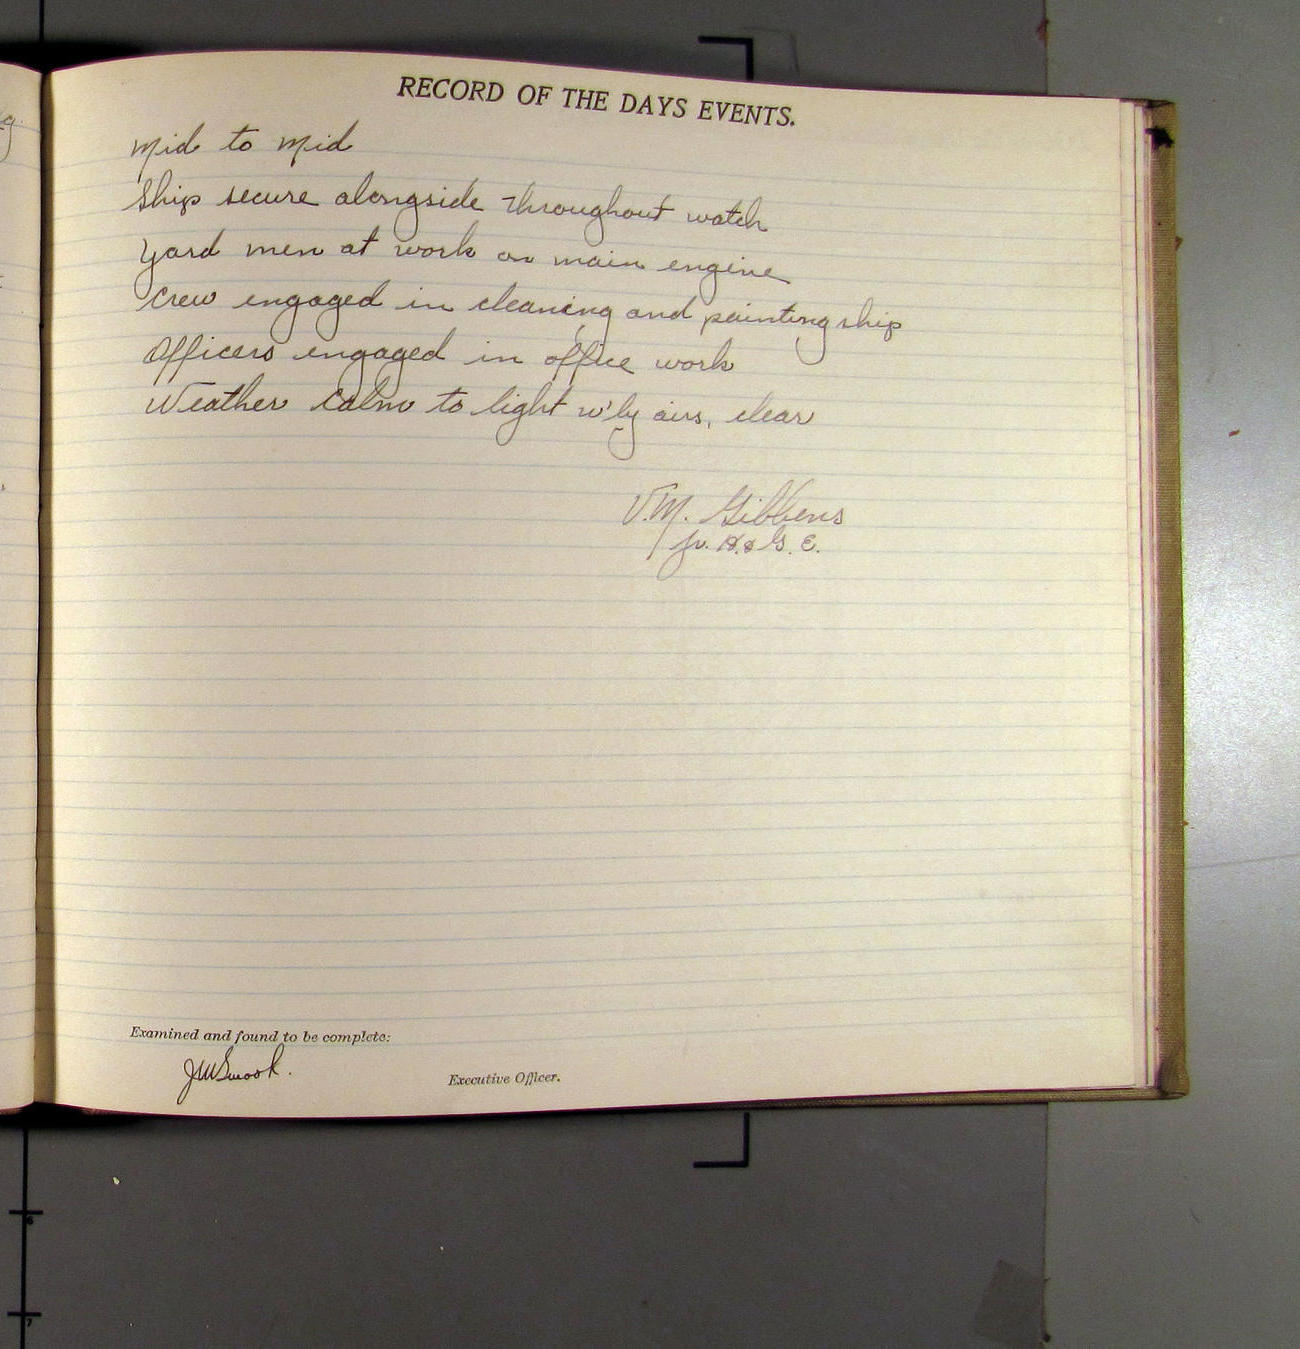 RECORD OF THE DAYS EVENTS.
Mid to Mid
Ship secure alongside throughout watch
Yard men at work on main engine
Crew engaged in cleaning and painting ship
Officers engaged in office work
Weather calm to light w'ly airs, clear
V.M. Gibbens
Jr. H. & G. E.
Examined and found to be complete:
JW Smook.
Executive Officer.
6
7